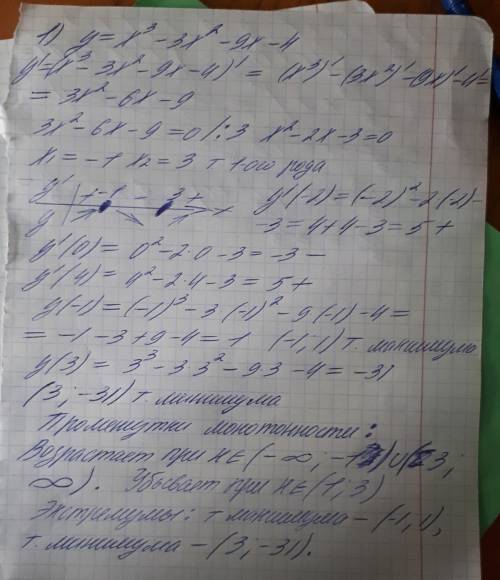 1) y = x³ - 3x² - 9x - 4
y' = (x³ - 3x² - 9x - 4)' = (x³)' - (3x²)' - (9x)' - 4' =
= 3x² - 6x - 9
3x² - 6x - 9 = 0 /:3 x² - 2x - 3 = 0
x₁ = -1 x₂ = 3 т 1-ого рода
y' + -1 - 3 + y'(-2) = (-2)² - 2(-2) -
y x - 3 = 4 + 4 - 3 = 5 +
y'(0) = 0² - 2·0 - 3 = -3 -
y'(4) = 4² - 2·4 - 3 = 5 +
y(-1) = (-1)³ - 3·(-1)² - 9·(-1) - 4 =
= -1 - 3 + 9 - 4 = -1 (-1; 1) т. максимума
y(3) = 3³ - 3·3² - 9·3 - 4 = -31
(3; -31) т. минимума
Промежутки монотонности:
Возрастает при x∈(-∞; -1)∪(3;
∞). Убывает при x∈(1; 3)
Экстремумы: т максимума - (-1, 1),
т. минимума - (3; -31).